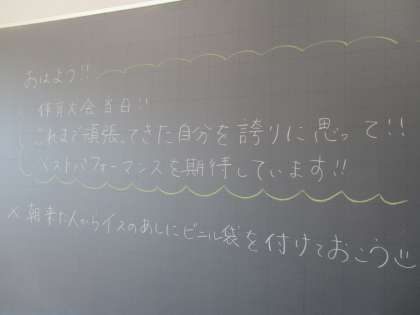 おはよう!!
体育大会当日!!
これまで頑張ってきた自分を誇りに思って!!
ベストパフォーマンスを期待しています!!
※朝来た人からイスのあしにビニル袋を付けておこう